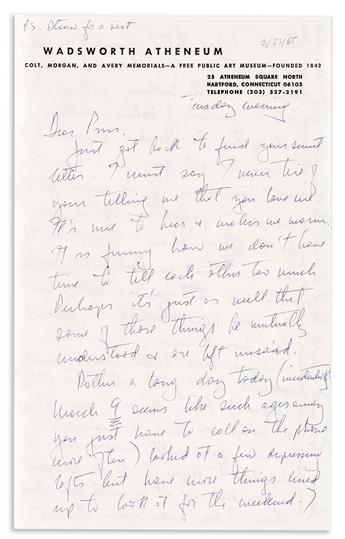 P.S. Dinner for a rest
2/23/65
WADSWORTH ATHENEUM
COLT, MORGAN, AND AVERY MEMORIALS—A FREE PUBLIC ART MUSEUM—FOUNDED 1842
25 ATHENEUM SQUARE NORTH
HARTFORD, CONNECTICUT 06103
TELEPHONE (203) 527-2191
Tuesday evening
Dear
Just got back to find your sweet
letter. I must say I never tire of
your telling me that you love me.
It's nice to hear & makes me warm.
It is funny how we don't have
time to tell each other too much.
Perhaps it's just as well that
some of those things be mutually
understood & are left unsaid.
a long day today (incidentally
March 9 seems like such ages away
you just have to call on the phone
more often) looked at a few depressing
lofts but have more things lined
up to look at for the weekend.)